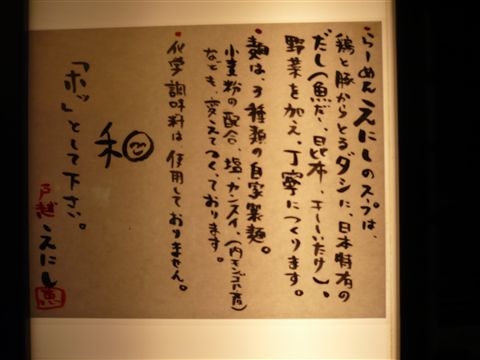 らーめんえにしのスープは、
鶏と豚からとるダシに、日本特有の
だし(魚だし、昆布、干ししいたけ)、
野菜を加え、丁寧につくります。
麺は、3種類の自家製麺。
小麦粉の配合、塩、カンスイ、(内モンゴル産)
なども、変えてつくっております。
化学調味料は使用しておりません。
和
「ホッ」として下さい。
戸越 えにし
恵